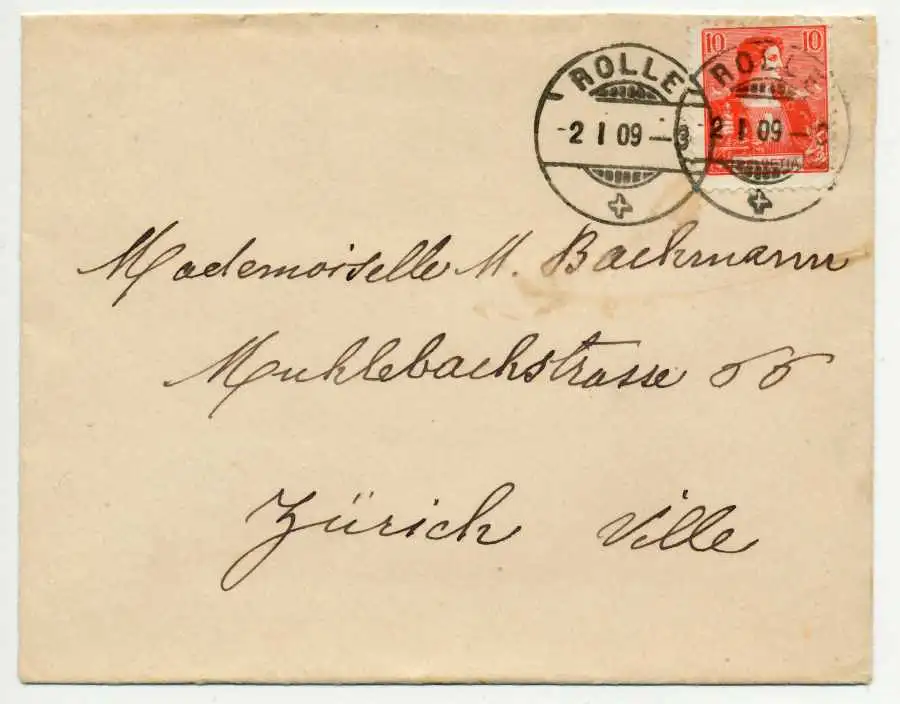 10 10
ROLLE
2 I 09 – 8
ROLLE
2 I 09 –
HELVETIA
Mademoiselle M. Bachmann
Muhlebachstrasse
Zürich Ville